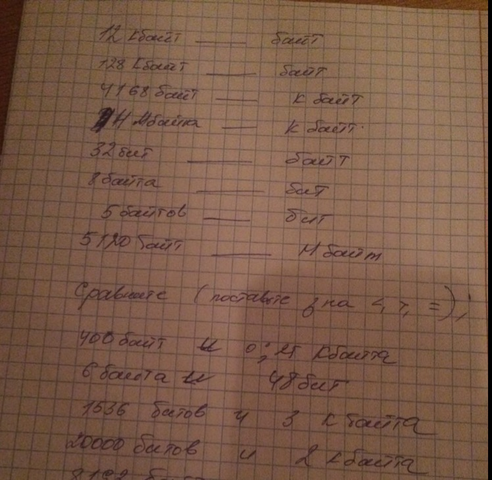 12 Кбайт ___ байт
128 Кбайт ___ байт
4168 байт ___ К байт
4 Мбайта ___ К байт.
32 бит ___ байт
8 байта ___ бит
5 байтов ___ бит
5120 байт ___ М байт
Сравните (поставьте зна <, >, =);
400 байт и Кбайта
6 байта и 48 бит
1536 битов и 3 К байта
20000 битов и 2 Кбайта